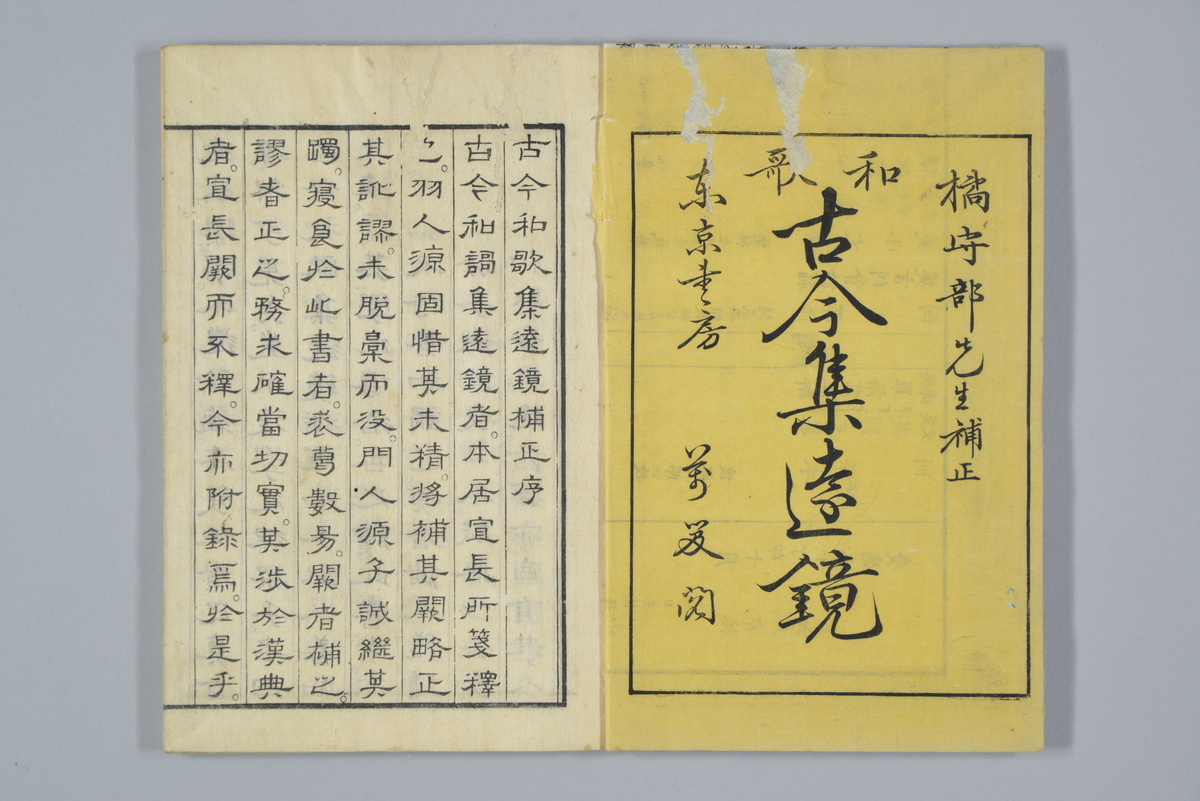 橘守部先生補正
和歌
古今集遠鏡
東京書房　萬笈閣
古今和歌集遠鏡補正序
古今和謌集遠鏡者。本居宣長所箋釋
也。羽人源固惜其未精。将補其闕略正
其訛謬。未脱稾而没。門人源子誠繼其
躅。寝食於此書者。裘葛數易。闕者補之。
謬者正之。務求確當切實。其渉於漢典
者。宣長闕而不釋。今亦附録焉。於是乎。